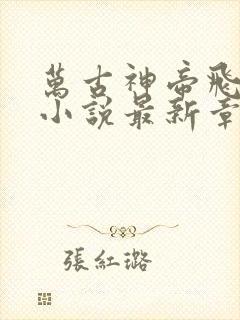 萬古神帝飛
小說最新章
張紅璐